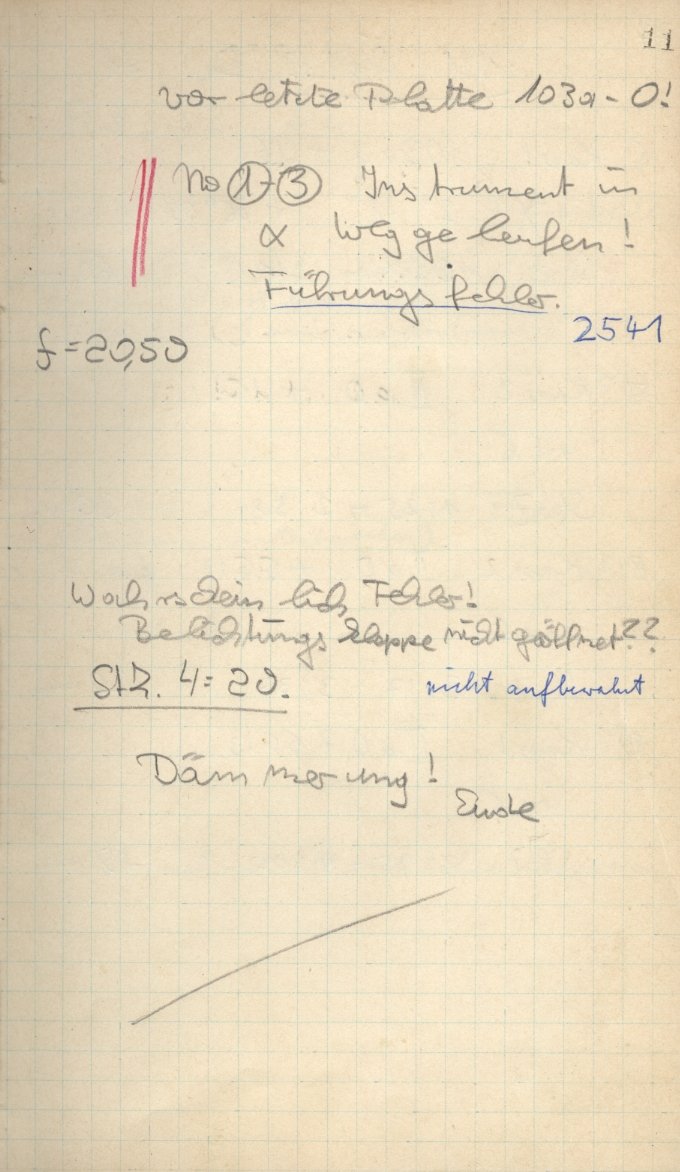 11
vorletzte Platte 103a-O!
No 1-3 Instrument in
α weggelaufen!
Führungsfehler.
2541
f = 20,50
Wahrscheinlich Fehler!
Belichtungsklappe nicht geöffnet??
StZ. 4 = 20.
nicht aufbewahrt
Dämmerung!
Ende